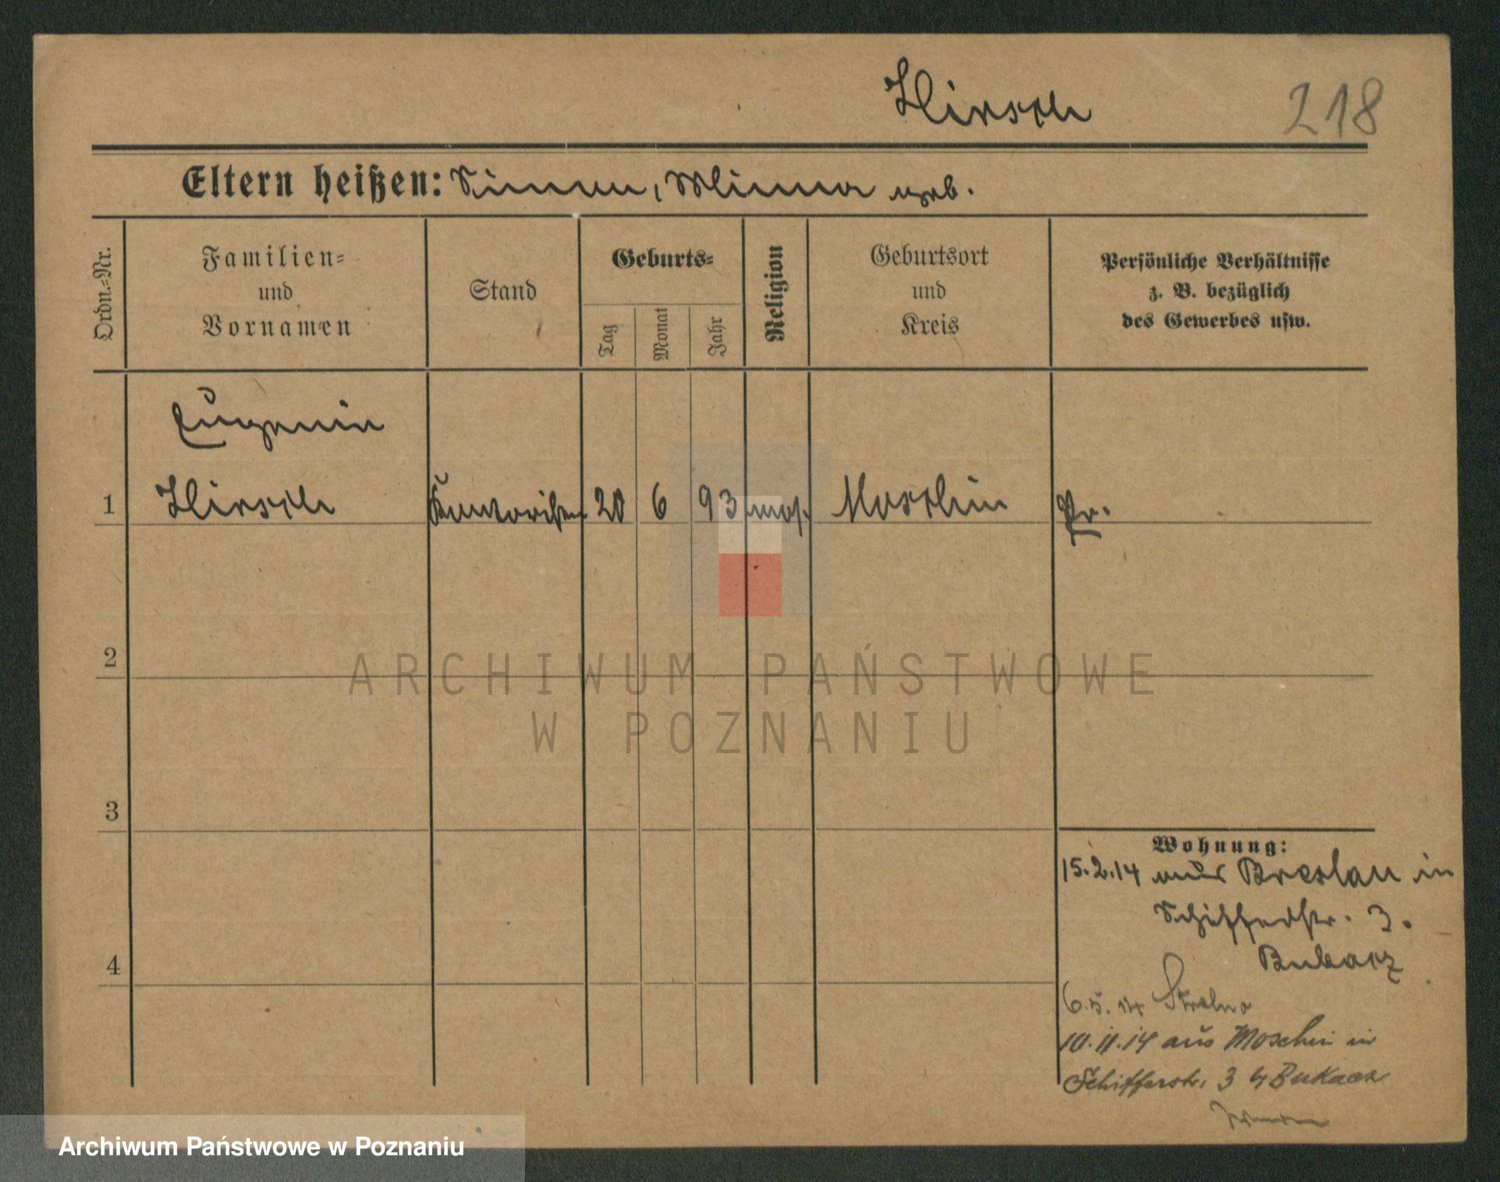 Hirsch
218
Eltern heißen: Simon, Minna geb.
Ordn.-Nr.
Familien-
und
Vornamen
Stand
Geburts-
Tag
Monat
Jahr
Religion
Geburtsort
und
Kreis
Persönliche Verhältnisse
z. B. bezüglich
des Gewerbes usw.
Eugenie
1 Hirsch Kontoristin 20 6 93 mos. Moschin Pr.
2
ARCHIWUM PAŃSTWOWE
W POZNANIU
3
Wohnung:
15.2.14 aus Breslau in
Schifferstr. 3.
4
6.5.14 Strelno
10.11.14 aus Moschin in
Schifferstr. 3 b/ Bukacz
Archiwum Państwowe w Poznaniu